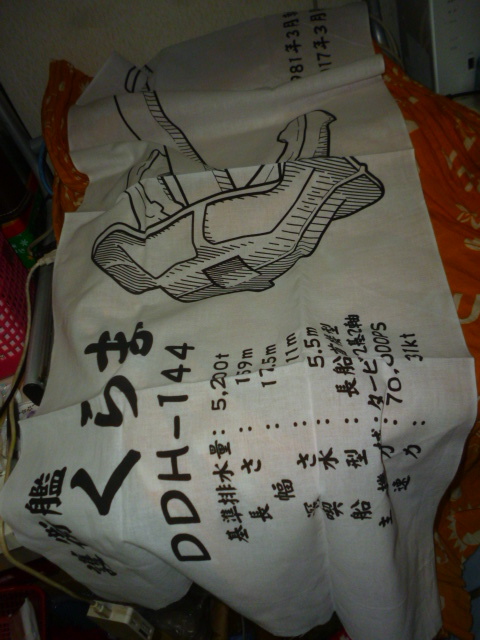 護衛艦
くらま
DDH-144
基準排水量: 5,200t
長さ: 159m
幅: 17.5m
深さ: 11m
喫水: 5.5m
船型: 長船首楼型
主機カ式: タービン2基2軸
70,000PS
速力: 31kt
981年3月
017年3月